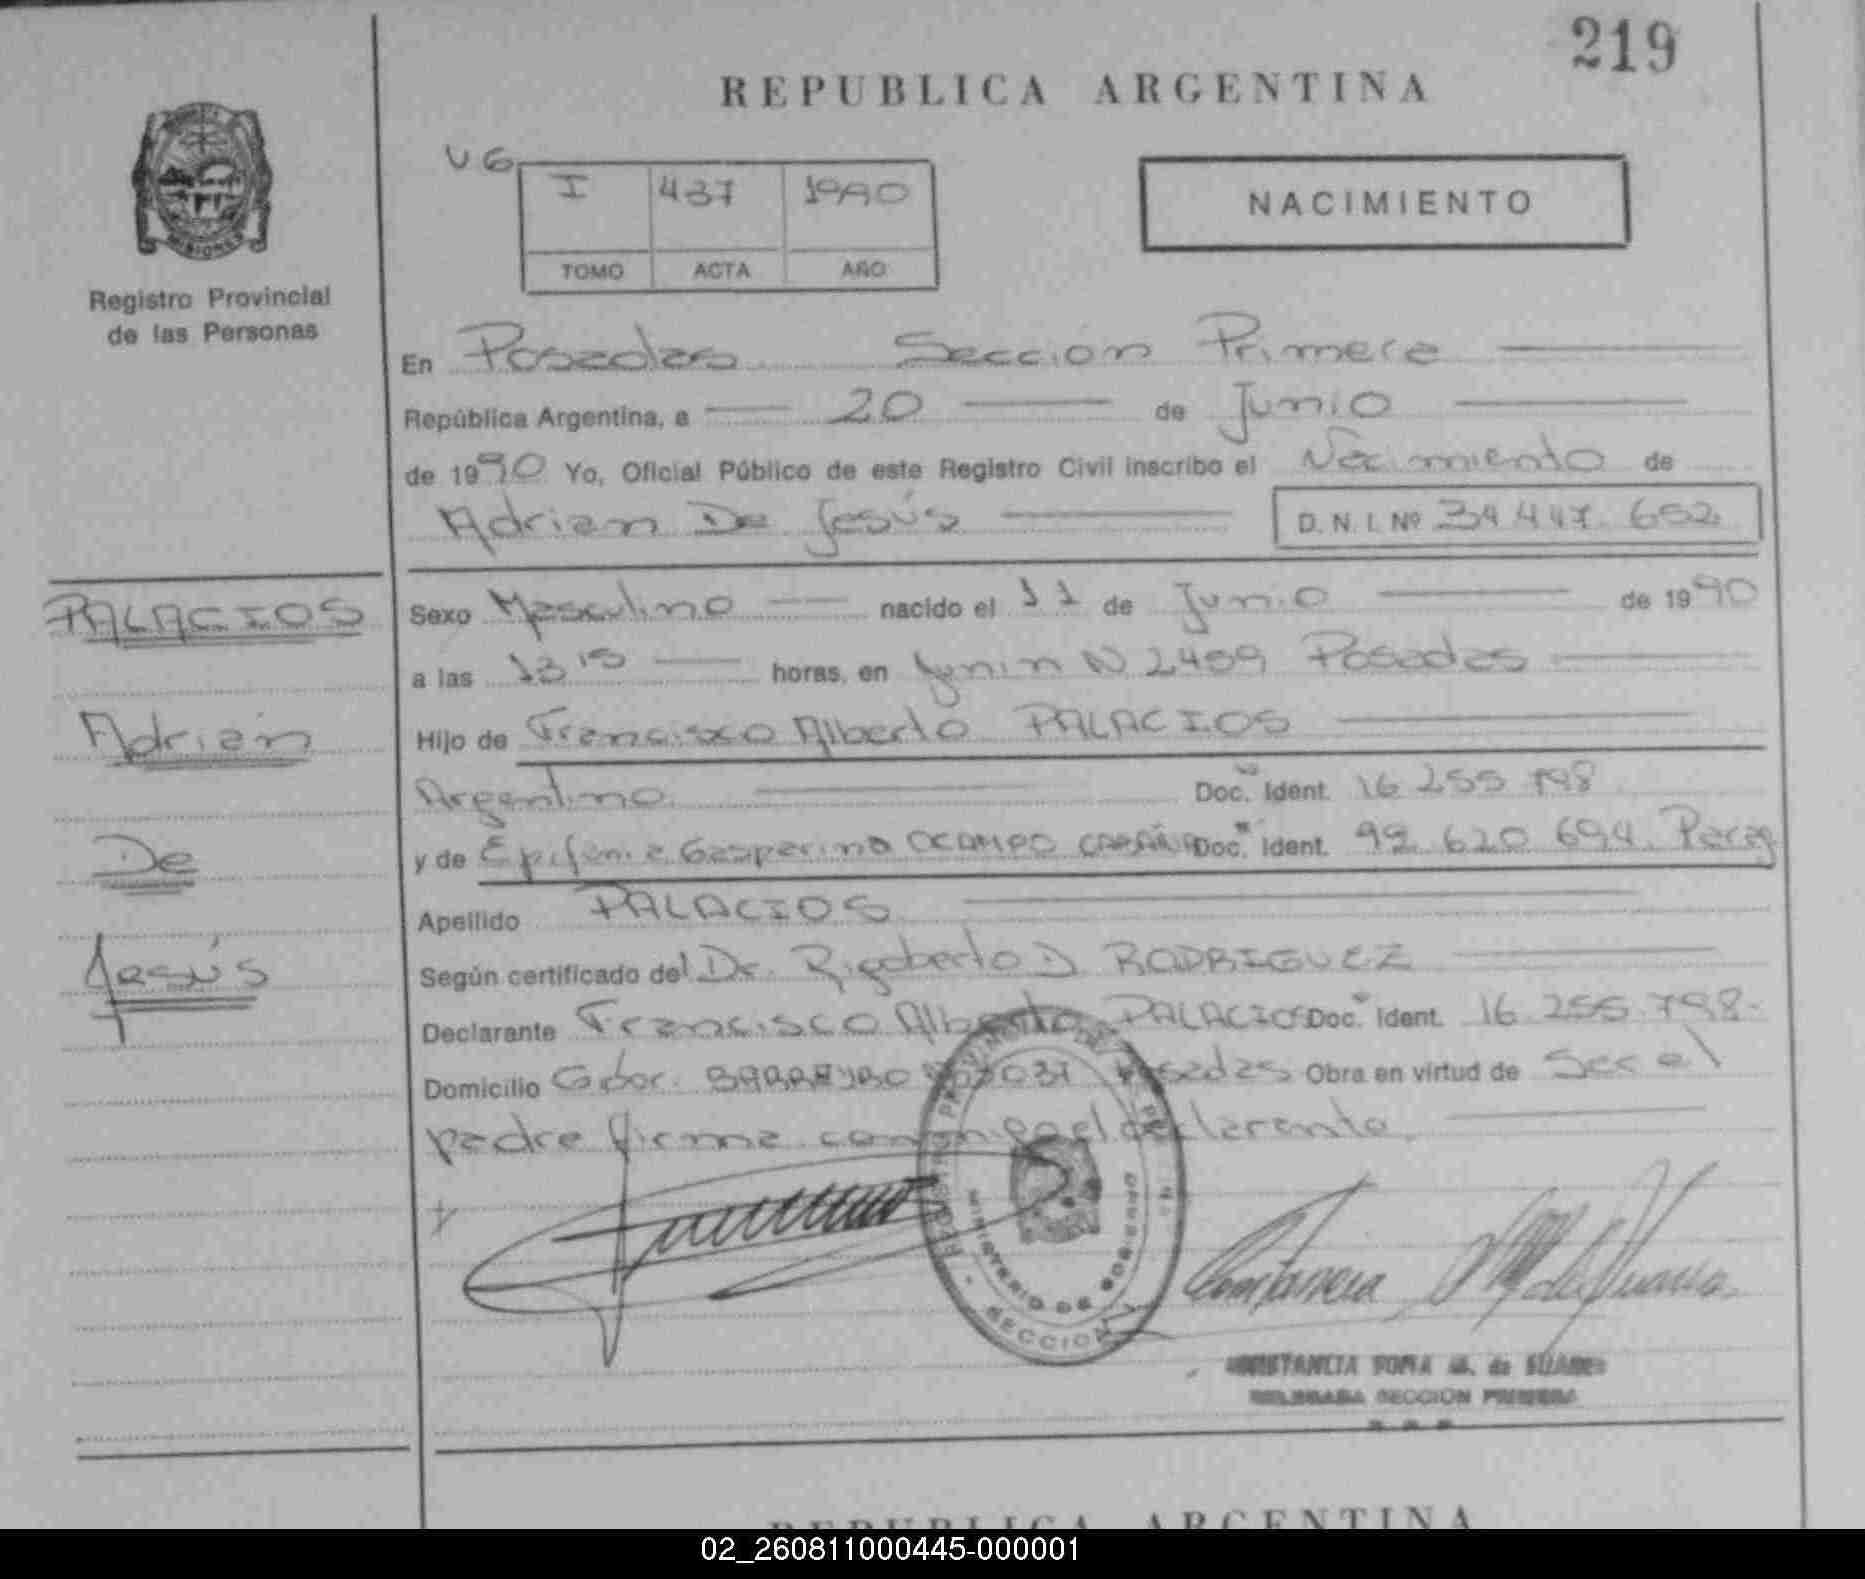 219
REPUBLICA ARGENTINA
V6
I 437 1990
TOMO ACTA AÑO
NACIMIENTO
MISIONES
Registro Provincial
de las Personas
En Posadas Sección Primera
República Argentina, a 20 de Junio
de 1990 Yo, Oficial Público de este Registro Civil inscribo el Nacimiento de
Adrian De Jesús D. N. I. Nº 34 447 652
PALACIOS
Adrián
De
Jesús
Sexo Masculino nacido el 11 de Junio de 1990
a las 13 15 horas, en Junin N 2459 Posadas
Hijo de Francisco Alberto PALACIOS
Argentino Doc. Ident. 16 255 798
y de Epifania Gasparina OCAMPO Doc. Ident. 92 620 694. Parag
Apellido PALACIOS
Según certificado del Dr. Rigoberto D RODRIGUEZ
Declarante Francisco Alberto PALACIOS Doc. Ident. 16 255 798-
Domicilio Gdor. BARREYRO 5037 Posadas Obra en virtud de Ser el
padre firma conmigo el declarante.
MINISTERIO DE GOBIERNO
SECCION
CONSTANCIA SOFIA M. de SUAREZ
DELEGADA SECCION PRIMERA
REPUBLICA ARGENTINA
02_260811000445-000001